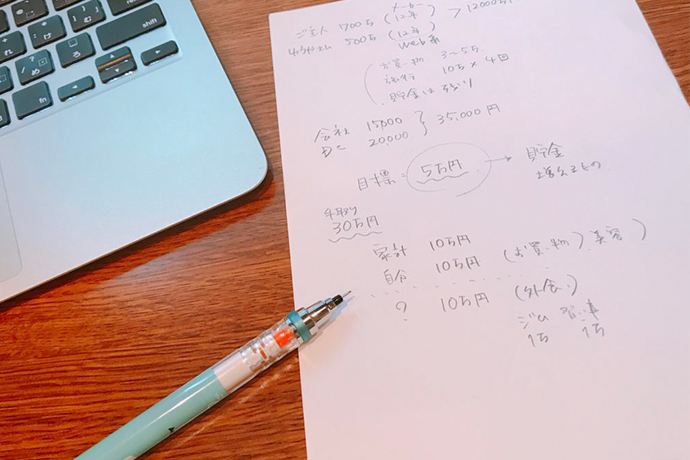 ご主人 1700万 (メーカー 12年) > 1200万
500万 (12年 Web系)
お買い物 3〜5万
旅行 10万×4回
貯金は残り
会社 15000
自己 20,000 } 35,000円
目標= 5万円 → 貯金
増えるもの
手取り
30万円
家計 10万円
自分 10万円 (お買い物) 美容)
? 10万円 (外食)
ジム 習い事
1万 1万